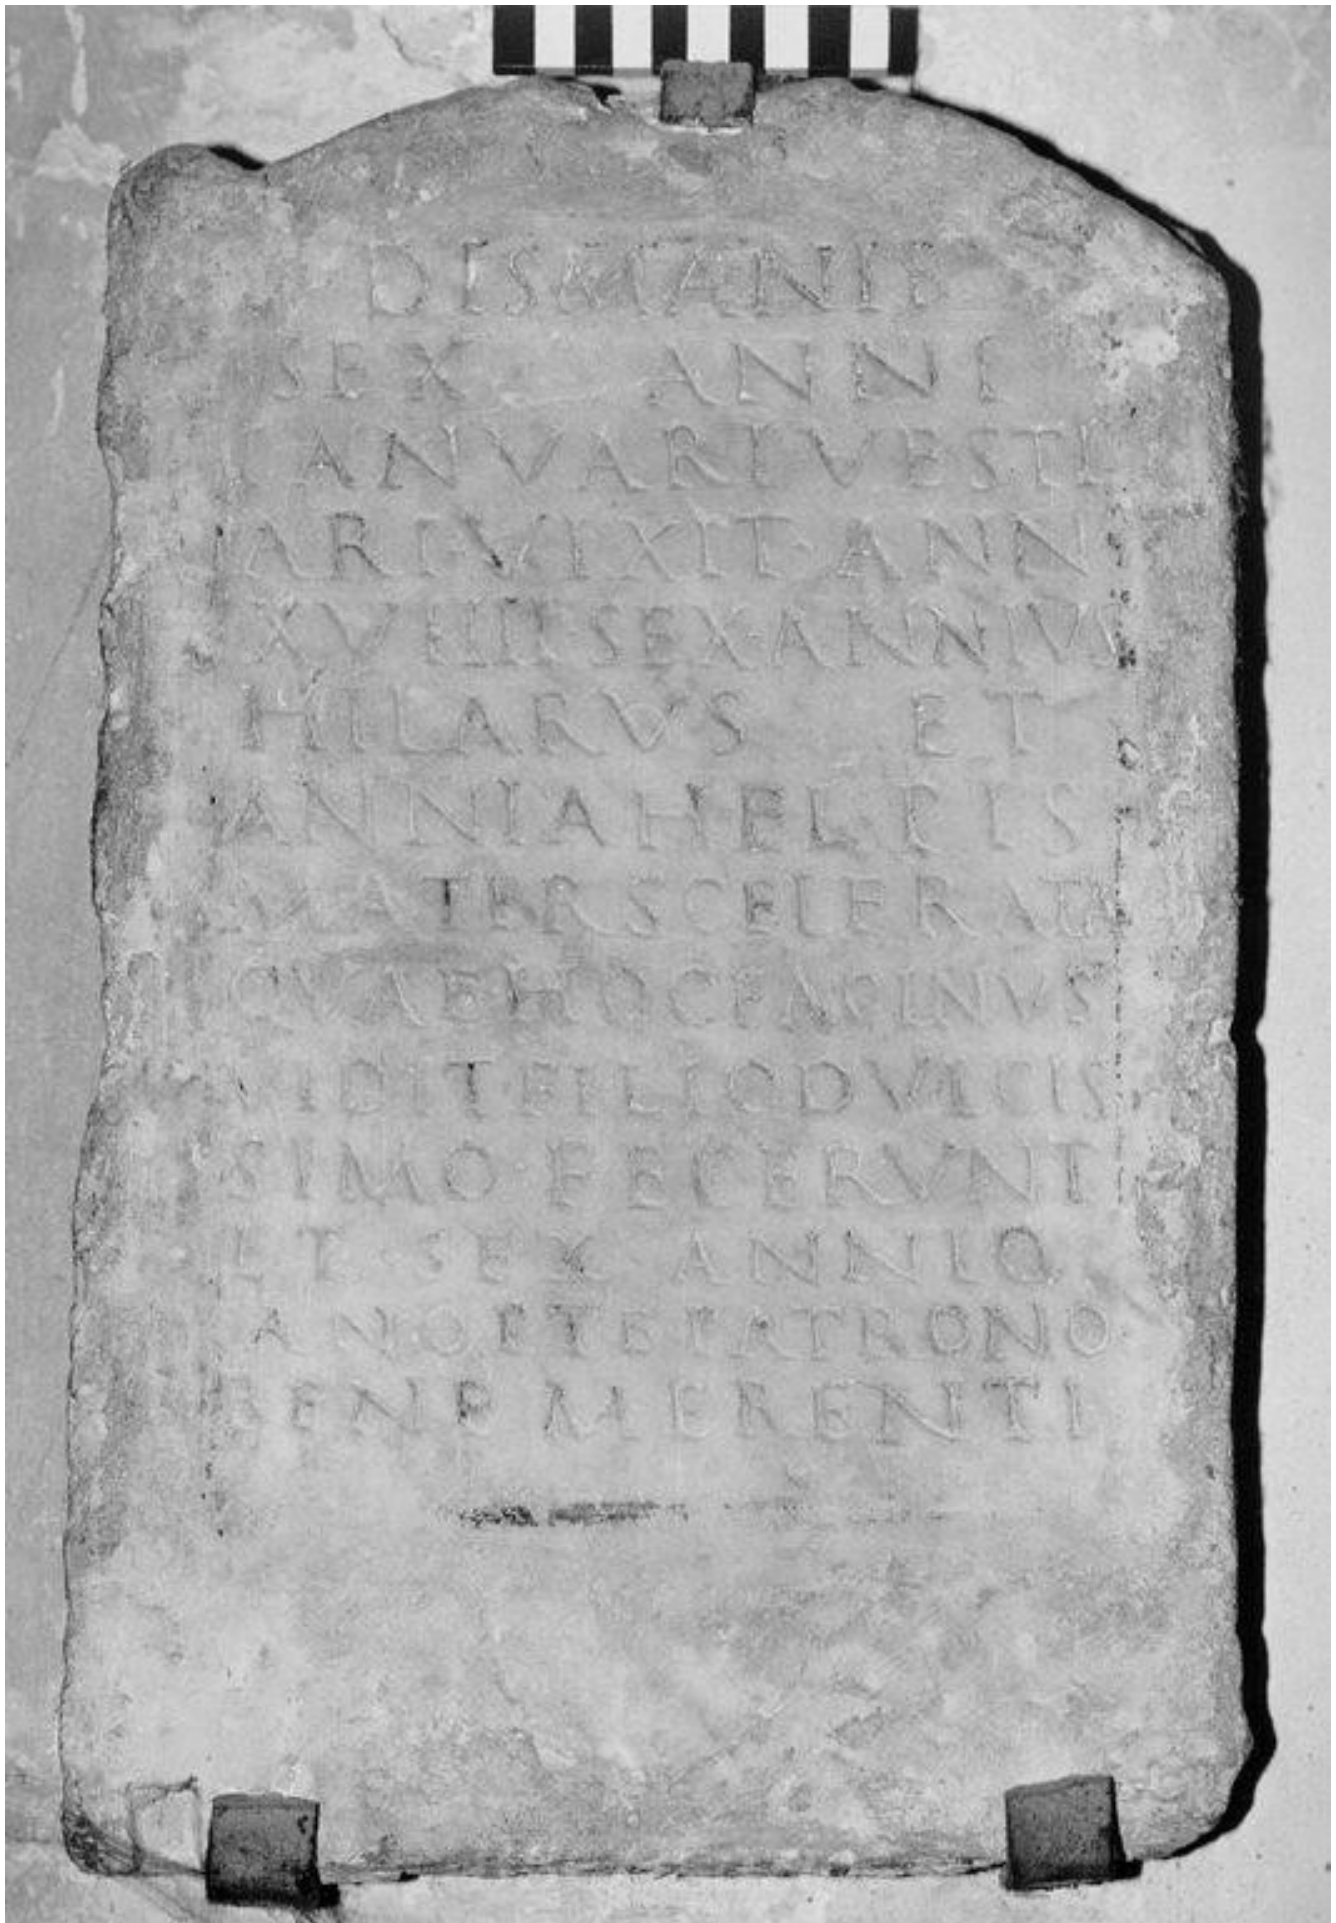 DIS MANIB
SEX ANNI
IANVARI VESTI
ARI VIXIT ANN
XVIIII SEX ANNIVS
HILARVS ET
ANNIA HELPIS
MATER SCELERATA
QVAE HOC FACINVS
VIDIT FILIO DVLCIS
SIMO FECERVNT
ET SEX ANNIO
ANOPTE PATRONO
BENE MERENTI